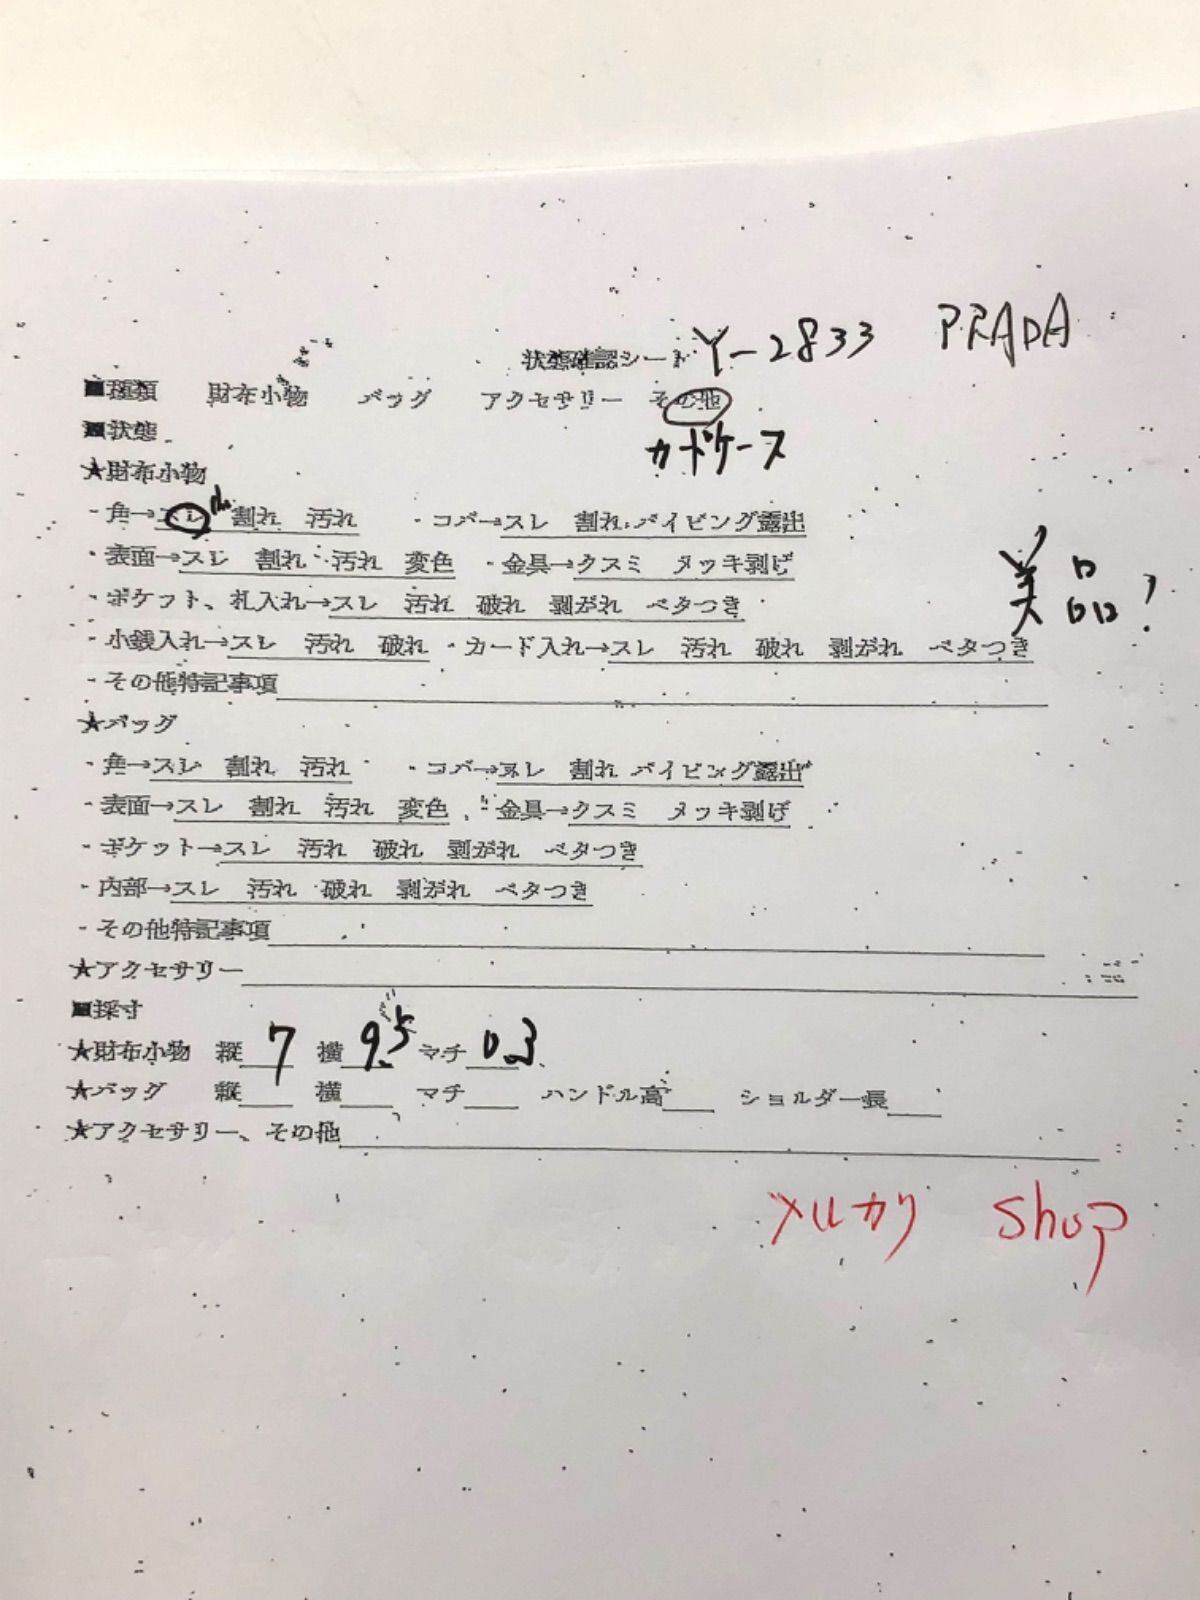 状態確認シート Y-2833 PRADA
■種類 財布小物 バッグ アクセサリー その他
■状態 カードケース
★財布小物
・角→スレ 割れ 汚れ ・コバ→スレ 割れ パイピング露出
・表面→スレ 割れ 汚れ 変色 ・金具→クスミ メッキ剥げ
美品?
・ポケット、札入れ→スレ 汚れ 破れ 剥がれ ベタつき
・小銭入れ→スレ 汚れ 破れ ・カード入れ→スレ 汚れ 破れ 剥がれ ベタつき
・その他特記事項
★バッグ
・角→スレ 割れ 汚れ ・コバ→スレ 割れ パイピング露出
・表面→スレ 割れ 汚れ 変色 ・金具→クスミ メッキ剥げ
・ポケット→スレ 汚れ 破れ 剥がれ ベタつき
・内部→スレ 汚れ 破れ 剥がれ ベタつき
・その他特記事項
★アクセサリー
■採寸
★財布小物 縦 7 横 9.5 マチ 0.3
★バッグ 縦 横 マチ ハンドル高 ショルダー長
★アクセサリー、その他
メルカリ shop